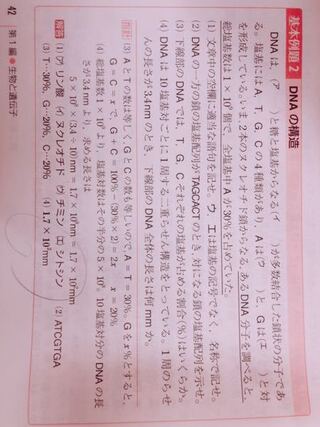 基本例題2 DNAの構造
DNAは(ア )と糖と塩基からなる(イ )が多数結合した鎖状の分子であ
る。塩基にはA, T, G, Cの4種類があり, Aは(ウ )と, Gは(エ )と対
を形成している。いま, 2本のヌクレオチド鎖からなる, あるDNA分子を調べると,
総塩基数は1×10⁸個で, 全塩基中Aが30%を占めていた。
(1) 文章中の空欄に適当な語句を記せ。ウ, エは塩基の記号でなく, 名称で記せ。
(2) DNAの一方の鎖の塩基配列がTAGCACTのとき, 対になる鎖の塩基配列を示せ。
(3) 下線部のDNAでは, T, G, Cそれぞれの塩基が占める割合(%)はいくらか。
(4) DNAは10塩基対ごとに1周する二重らせん構造をとっている。1周のらせ
んの長さが3.4nmのとき, 下線部のDNA全体の長さは何mmか。
指針 (3) AとTの数は等しく, GとCの数も等しいので, A=T=30%, Gをx%とすると,
G=C=xで, G+C=100%-(30%×2)=2x x=20%
(4) 総塩基数1×10⁸より, 塩基対数はその半分の5×10⁷。10塩基対分のDNAの長
さが3.4nmより, 求める長さは
5×10⁷×(3.4÷10)nm=1.7×10⁷nm=1.7×10¹mm
解答 (1) ア リン酸 イ ヌクレオチド ウ チミン エ シトシン (2) ATCGTGA
(3) T…30%, G…20%, C…20% (4) 1.7×10¹mm
42 第1編●生物と遺伝子